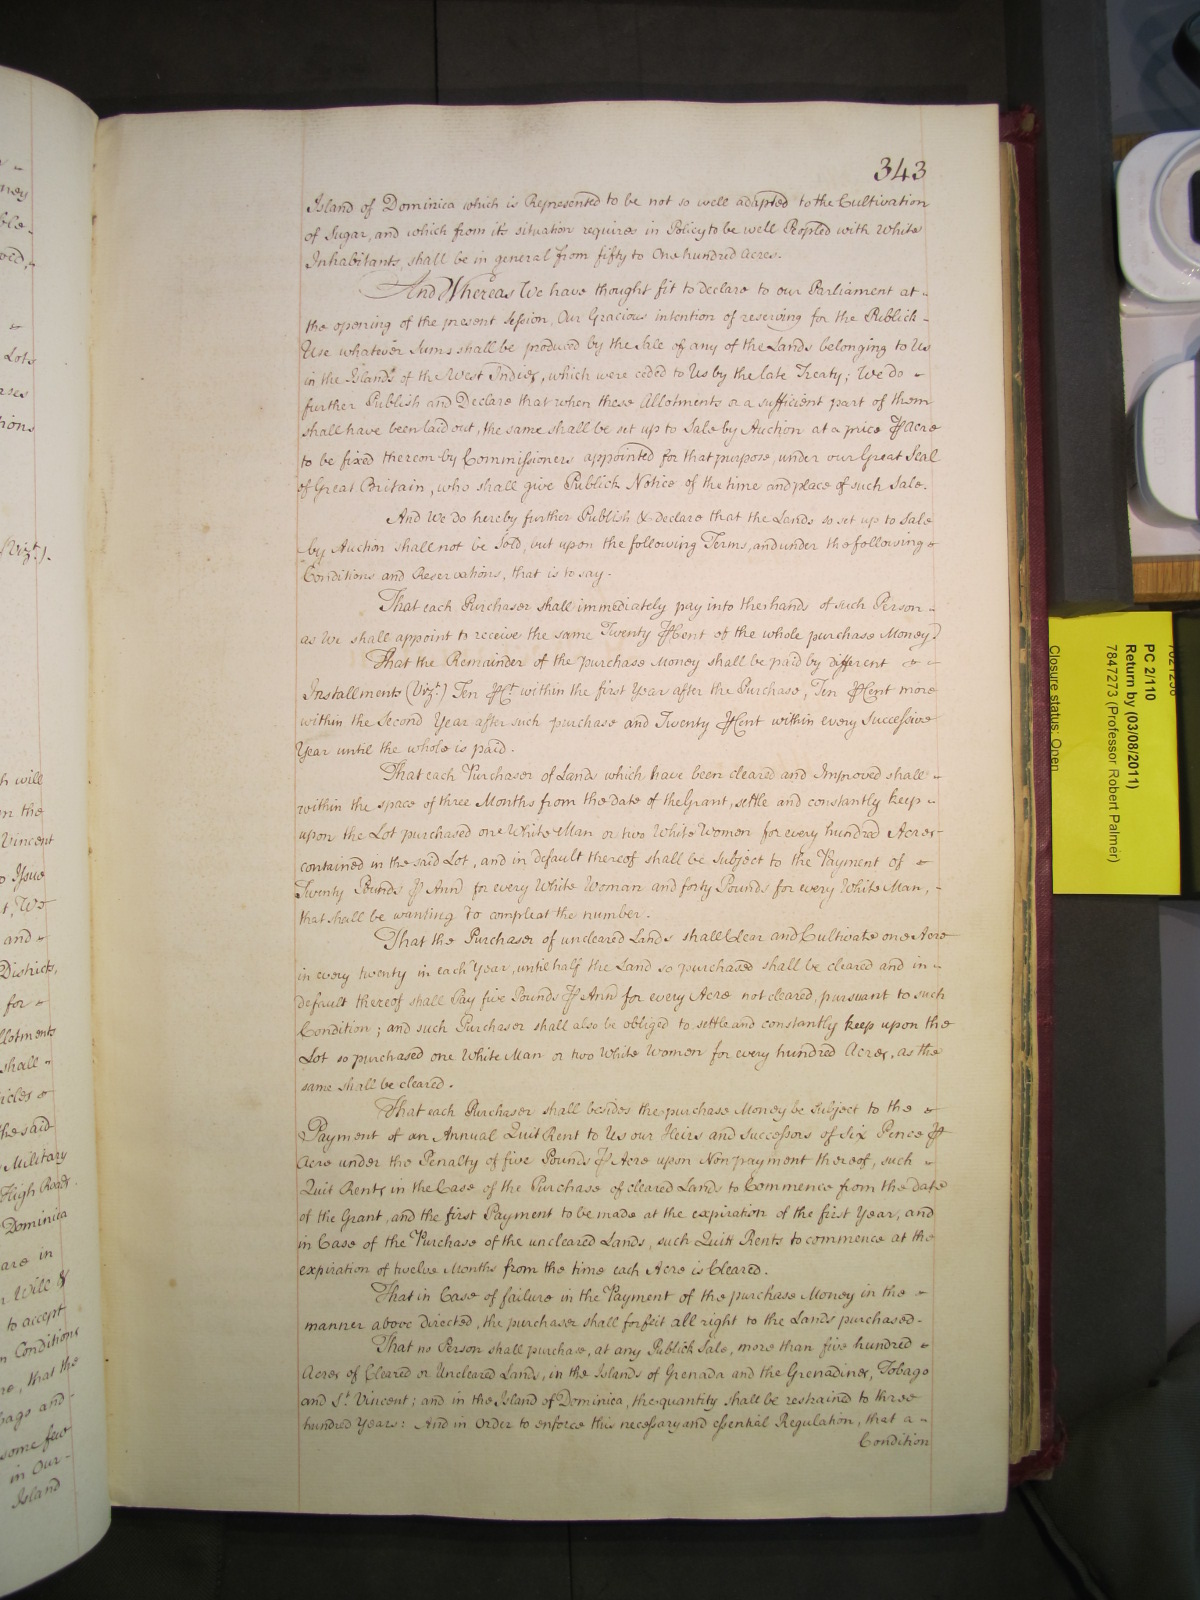 343
Island of Dominica which is Represented to be not so well adapted to the Cultivation
of Sugar, and which from its situation requires in Policy to be well Peopled with White
Inhabitants, shall be in general from fifty to One hundred Acres.
And Whereas We have thought fit to Declare to our Parliament at
the opening of the present Session, Our Gracious intention of reserving for the Publick
Use whatever Sums shall be produced by the Sale of any of the Lands belonging to Us
in the Islands of the West Indies, which were ceded to Us by the late Treaty; We do
further Publish and Declare that when these Allotments or a sufficient part of them
shall have been laid out, the same shall be set up to Sale by Auction at a price ⅌ Acre
to be fixed thereon by Commissioners appointed for that purpose, under our Great Seal
of Great Britain, who shall give Publick Notice of the time and place of such Sale.
And We do hereby further Publish & declare that the Lands so set up to Sale
by Auction shall not be Sold, but upon the following Terms, and under the following
Conditions and Reservations, that is to say.
That each Purchaser shall immediately pay into the hands of such Person
as We shall appoint to receive the same Twenty ⅌ Cent of the whole purchase Money.
That the Remainder of the purchase Money shall be paid by different
Installments (Vizt.) Ten ⅌ Ct. within the first Year after the Purchase, Ten ⅌ Cent more
within the Second Year after such purchase and Twenty ⅌ Cent within every Successive
Year until the whole is paid.
That each Purchaser of Lands which have been cleared and Improved shall
within the space of three Months from the date of the Grant, settle and constantly keep
upon the Lot purchased one White Man or two White Women for every hundred Acres
contained in the said Lot, and in default thereof shall be subject to the Payment of
Twenty Pounds ⅌ Ann for every White Woman and forty Pounds for every White Man,
that shall be wanting to compleat the number.
That the Purchaser of uncleared Lands shall Clear and Cultivate one Acre
in every twenty in each Year, until half the Land so purchased shall be cleared and in
default thereof shall Pay five Pounds ⅌ Ann for every Acre not cleared, pursuant to such
Condition; and such Purchaser shall also be obliged to settle and constantly keep upon the
Lot so purchased one White Man or two White Women for every hundred Acres, as the
same shall be cleared.
That each Purchaser shall besides the purchase Money be Subject to the
Payment of an Annual Quit Rent to Us our Heirs and Successors of Six Pence ⅌
Acre under the Penalty of five Pounds ⅌ Acre upon Non payment thereof, such
Quit Rents in the Case of the Purchase of cleared Lands to Commence from the date
of the Grant, and the first Payment to be made at the expiration of the first Year, and
in Case of the Purchase of the uncleared Lands, such Quitt Rents to commence at the
expiration of twelve Months from the time each Acre is Cleared.
That in Case of failure in the Payment of the purchase Money in the
manner above directed, the purchaser shall forfeit all right to the Lands purchased.
That no Person shall purchase, at any Publick Sale, more than five hundred
Acres of Cleared or Uncleared Lands, in the Islands of Grenada and the Grenadines, Tobago
and St. Vincent; and in the Island of Dominica, the quantity shall be restrained to three
hundred Years: And in Order to enforce this necessary and essential Regulation, that a
Condition
ney
Lots
tions
(Vizt.).
will
n the
Vincent
Issue
We
and
Districts,
for
llotments
shall
icles
the said
Military
High Roads
Dominica
are in
Will &
to accept
Conditions
that the
bago and
some few
in Our
Island
PC 2/110
Return by (03/08/2011)
7847273 (Professor Robert Palmer)
Closure status: Open